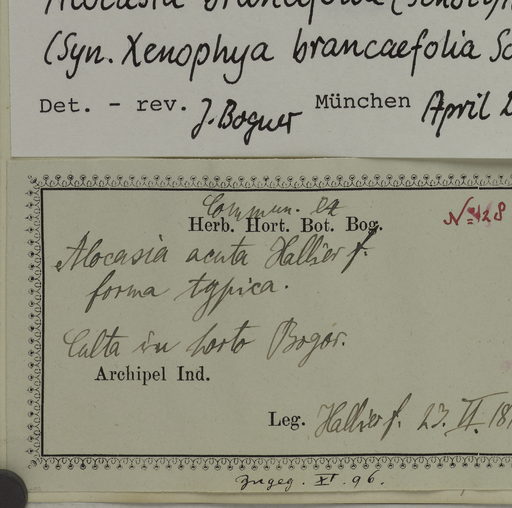 Alocasia brancaefolia (Schott)
(Syn. Xenophya brancaefolia Sc
Det. - rev. J. Bogner München April 2
Commun. ex
Herb. Hort. Bot. Bog.
N° 428
Alocasia acuta Hallier f.
forma typica.
Culta in horto Bogor.
Archipel Ind.
Leg. Hallier f. 23. II 18
Ingeg. XI. 96.